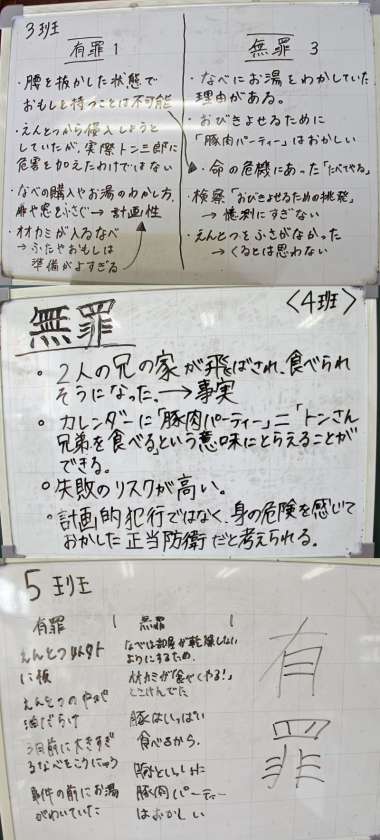 3班
有罪 1
・腰を抜かした状態で
おもしを持つことは不可能
・えんとつから侵入しようと
していたが、実際トン三郎に
危害を加えたわけではない
・なべの購入やお湯のわかし方、
扉や窓をふさぐ→計画性
・オオカミが入るなべ
→ふたやおもしは
準備がよすぎる
無罪 3
・なべにお湯をわかしていた
理由がある。
・おびきよせるために
「豚肉パーティー」はおかしい
・命の危機にあった「たべてやる」
・検察「おびきよせるための挑発」
→憶測にすぎない
・えんとつをふさがなかった
→くるとは思わない
〈4班〉
無罪
・2人の兄の家が飛ばされ、食べられ
そうになった。→事実
・カレンダーに「豚肉パーティー」=「トンさん
兄弟を食べる」という意味にとらえることが
できる。
・失敗のリスクが高い。
・計画的犯行ではなく、身の危険を感じて
おかした正当防衛だと考えられる。
5班
有罪 1
えんとつ以外
に板
えんとつの中が
油だらけ
3日前に大きすぎ
るなべをこうにゅう
事件の前にお湯
がわいていた
無罪 1
なべは部屋が乾燥しない
ようにするため.
オオカミが「食べてやる!」
とさけんでた
豚はいっぱい
食べるから.
豚といっしょに
豚肉パーティー
はおかしい
有
罪